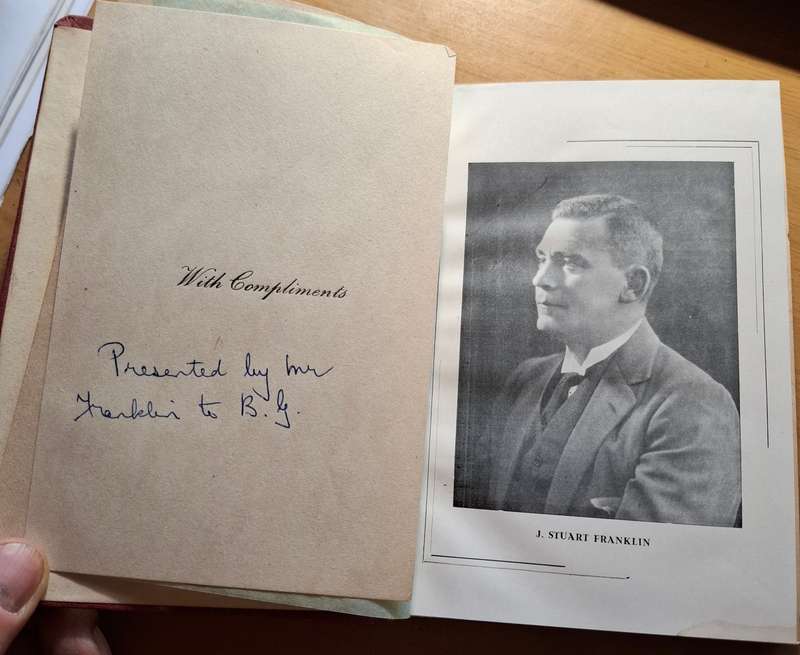 With Compliments
Presented by Mr
Franklin to B.G.
J. STUART FRANKLIN